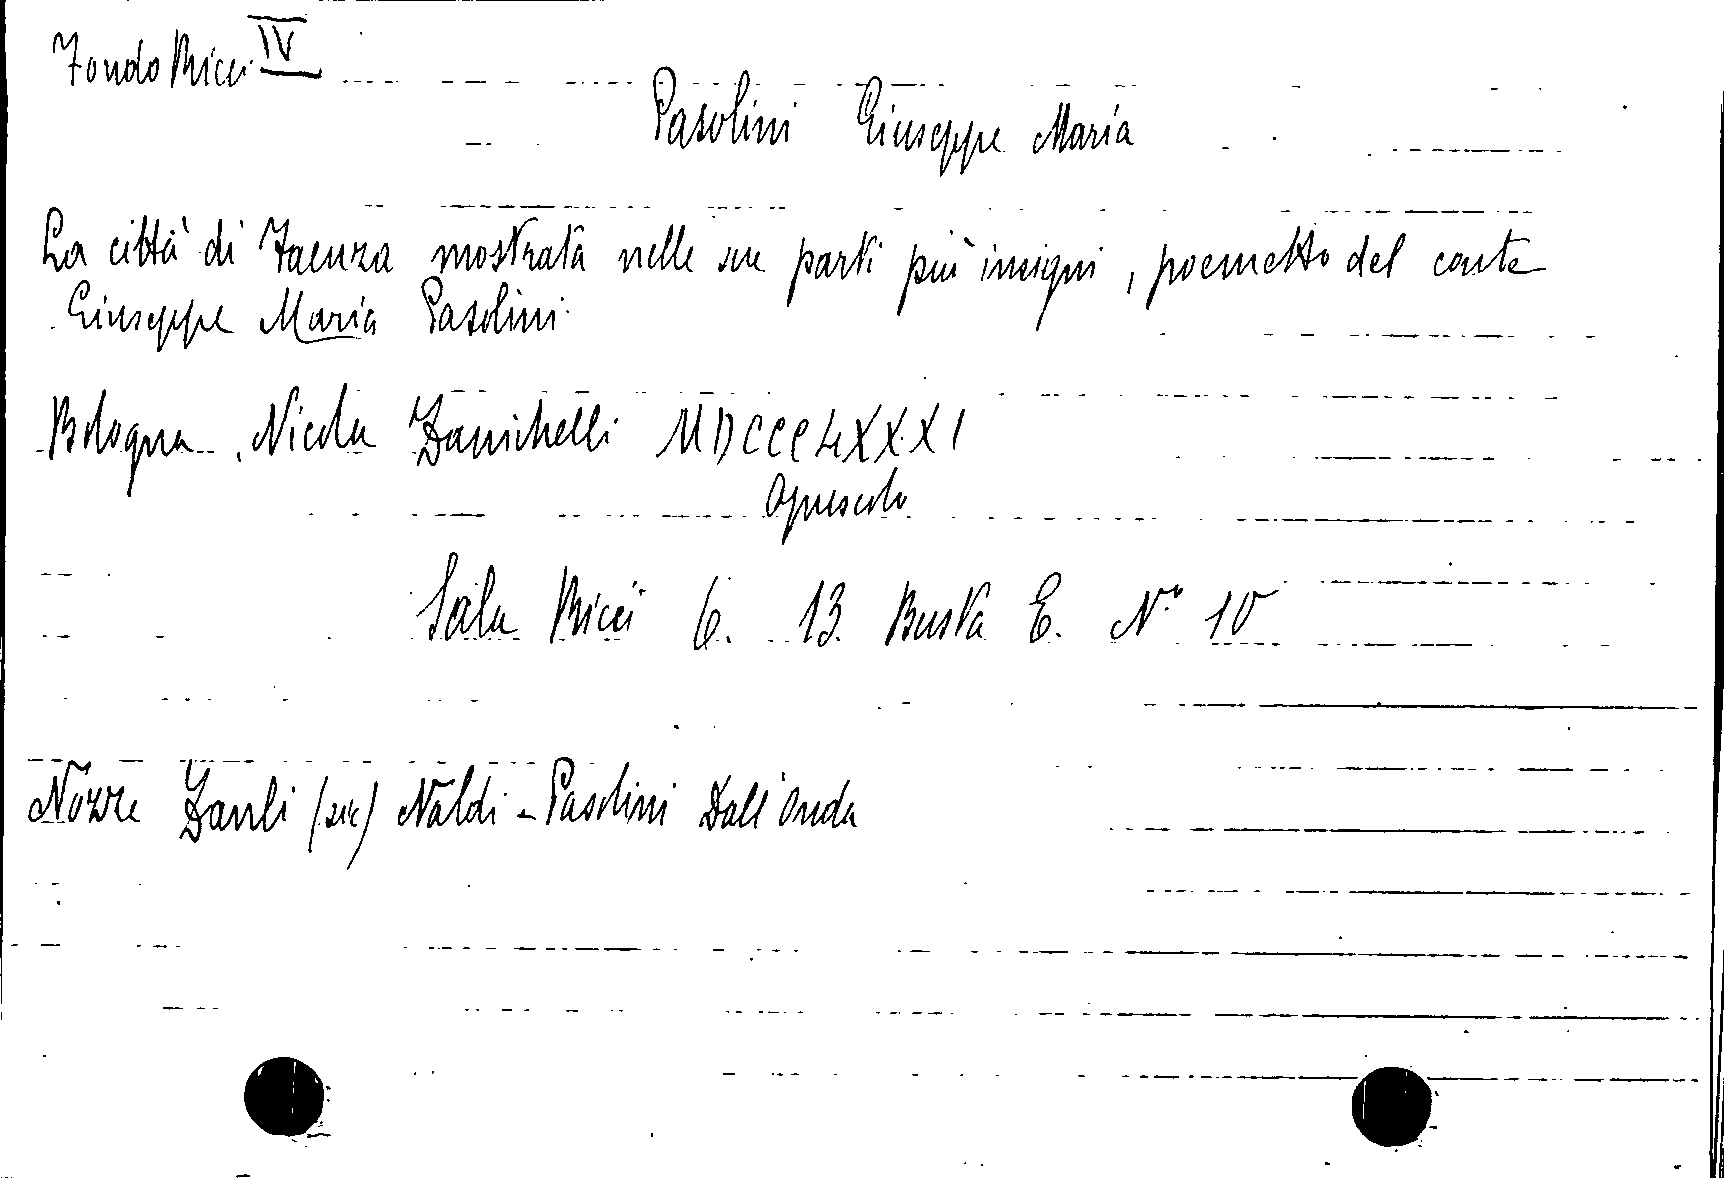 Fondo Ricci IV
Pasolini Giuseppe Maria
La città di Faenza mostrata nelle sue parti più insigni, poemetto del conte
Giuseppe Maria Pasolini
Bologna, Nicola Zanichelli MDCCCLXXXI
Opuscolo
Sala Ricci 6. 13. Busta E. N° 10
Nozze Zauli (sic) Naldi - Pasolini Dall'Onda